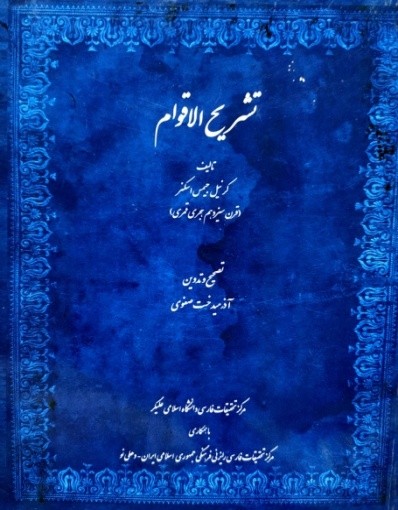 تشریح الاقوام
تالیف
کرنیل جیمس اسکنر
(قرن سیزدهم هجری قمری)
تصحیح و تدوین
آذرمیدخت صفوی
مرکز تحقیقات فارسی دانشگاه اسلامی علیگر
با همکاری
مرکز تحقیقات فارسی رایزنی فرهنگی جمهوری اسلامی ایران - دهلی نو